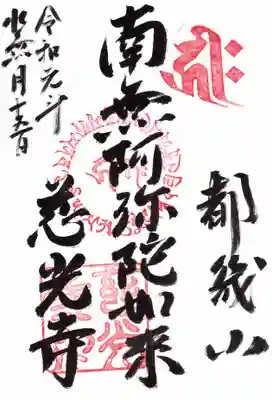 都幾山
南無阿弥陀如来
慈光寺
令和元年
水無月